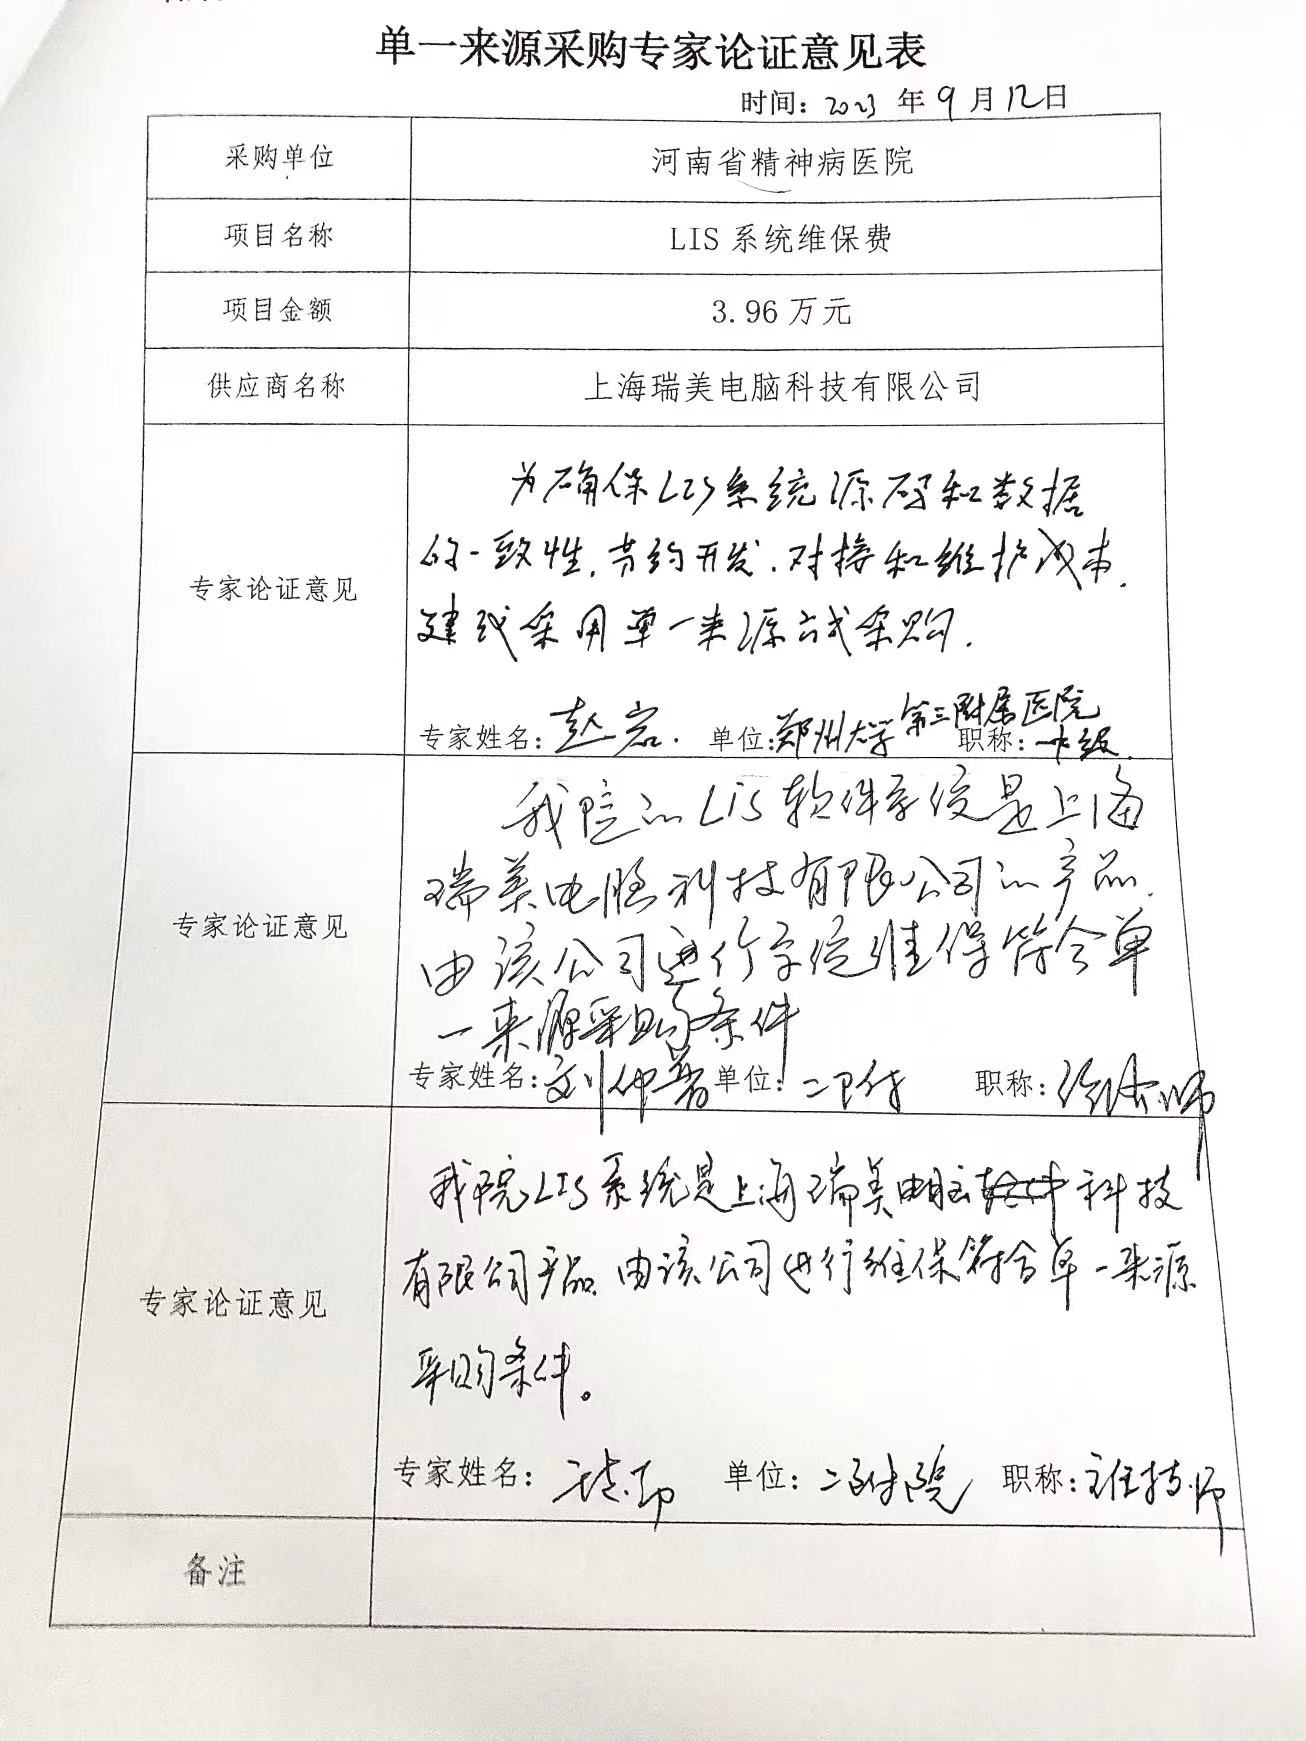 单一来源采购专家论证意见表
时间：2023 年 9 月 12日
采购单位
河南省精神病医院
项目名称
LIS 系统维保费
项目金额
3.96 万元
供应商名称
上海瑞美电脑科技有限公司
为确保LIS系统源码和数据
的一致性,节约开发.对接和维护成本,
专家论证意见
建议采用单一来源方式采购.
专家姓名：赵岩. 单位:郑州大学第三附属医院 职称：中级.
我院的LIS软件系统是上海
瑞美电脑科技有限公司的产品.
专家论证意见
由该公司进行系统维保符合单
一来源采购条件
专家姓名：刘仲 单位：二附 职称：师
我院LIS系统是上海瑞美电脑科技
有限公司产品.由该公司进行维保符合单一来源
专家论证意见
采购条件。
专家姓名： 单位：二附院 职称：主任技师
备注